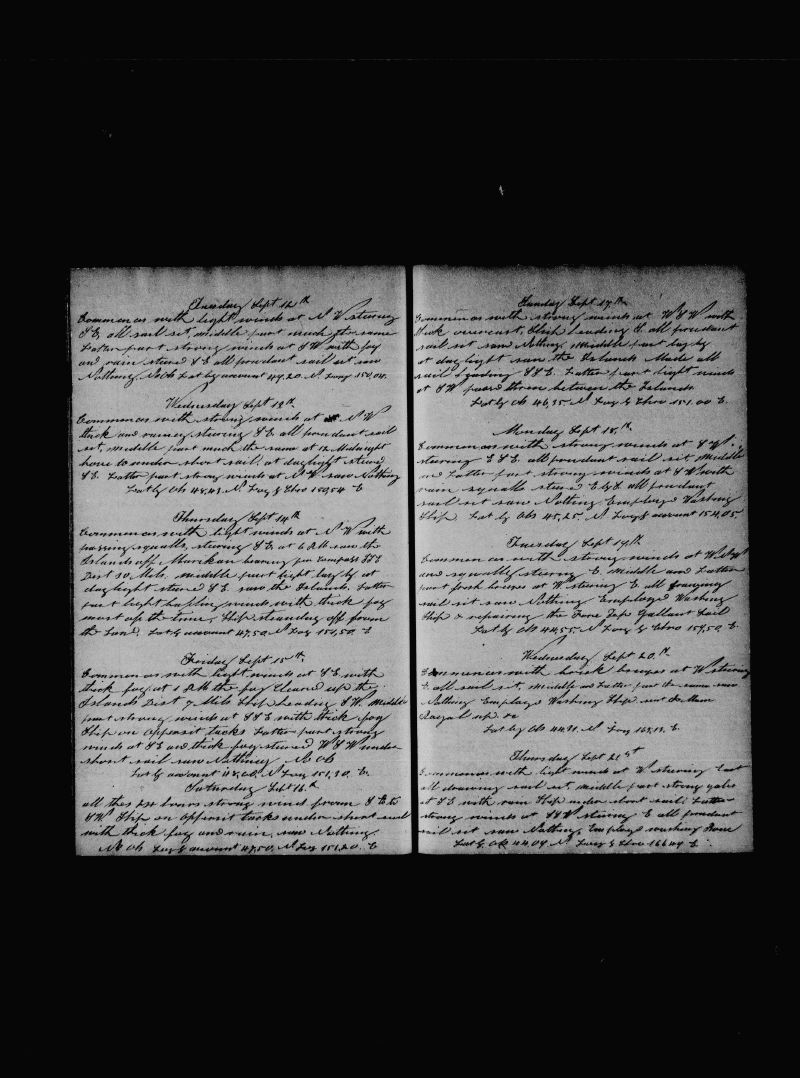 Tuesday Sept 12th
Commences with light winds at N W steering
S E, all sail set, middle part much the same
Latter part strong winds at S W with fog
and rain steered S E all prudant sail set saw
Nothing No Ob Lat by account 49,20 N Long 150,04
Wednesday Sept 13th
Commences with strong winds at N W
thick and rainey steering S E all prudant sail
set, middle part much the same at 12 Midnight
hove to under short sail, at daylight steered
S E Latter part strong winds at N W saw Nothing
Lat by Ob 48,43 N Long by Chro 150,54 E
Thursday Sept 14th
Commences with light winds at N W with
passing squalls, steering S E at 6 PM saw the
Islands off bearing per Compass
Dist 30 Mls, middle part light lay by at
daylight steered S E saw the Islands. Latter
part light winds with thick fog
most of the time, Ship standing off from
the Land. Lat by account 47,50 N Long 151,50 E
Friday Sept 15th
Commences with light winds at S E with
thick fog at 1 PM the fog Cleared up the
Islands Dist 7 Mils Ship heading S W. Middle
part strong winds at S S E with thick fog
Ship on Opposit Tacks Latter part strong
winds at S E and thick fog steered W S W under
short sail saw Nothing No Ob
Lat by account 48,00 N Long 151,30 E
Saturday Sept 16th
all thes 24 hours strong winds from S E to
S W Ship on opposit tacks under short sail
with thick fog and rain, saw Nothing
No Ob Lat by account 47,50 N Long 151,20 E
Sunday Sept 17th
Commences with strong winds at W S W with
thick overcast, Ship heading S. all prudant
sail set saw Nothing Middle part lay by
at daylight saw the Islands Made all
sail heading S S E. Latter part light winds
at S W passed threw between the Islands
Lat by Ob 46,35 N Long by Chro 151,00 E.
Monday Sept 18th
Commences with strong winds at
steering E S E all prudant sail set Middle
and Latter part strong winds at S W with
rain squalls steered all prudant
sail set saw Nothing Employed Washing
Ship Lat by Obs 45,25 N Long by account 154,05
Tuesday Sept 19th
Commences with strong winds at
and squally steering E. Middle and Latter
part fresh breezes at W steering E. all
sail set saw Nothing Employed Washing
Ship & repairing the Fore Top Gallant Sail
Lat by Ob 44,55 N Long by Chro 159,50 E
Wednesday Sept 20th
Commences with brisk breezes at W steering
E all sail set, Middle and Latter part the same saw
Nothing Employed Washing Ship sent the Main
Royal up
Lat by Ob 44,31 N Long E.
Thursday Sept 21st
Commences with light winds at W steering East
all drawing sail set, Middle part strong gales
at S E with rain Ship under short sail Latter
strong winds at S S W steering E all prudant
sail set saw Nothing, Employed washing Bone
Lat by Ob 44,04 N Long by Chro 166,49 E